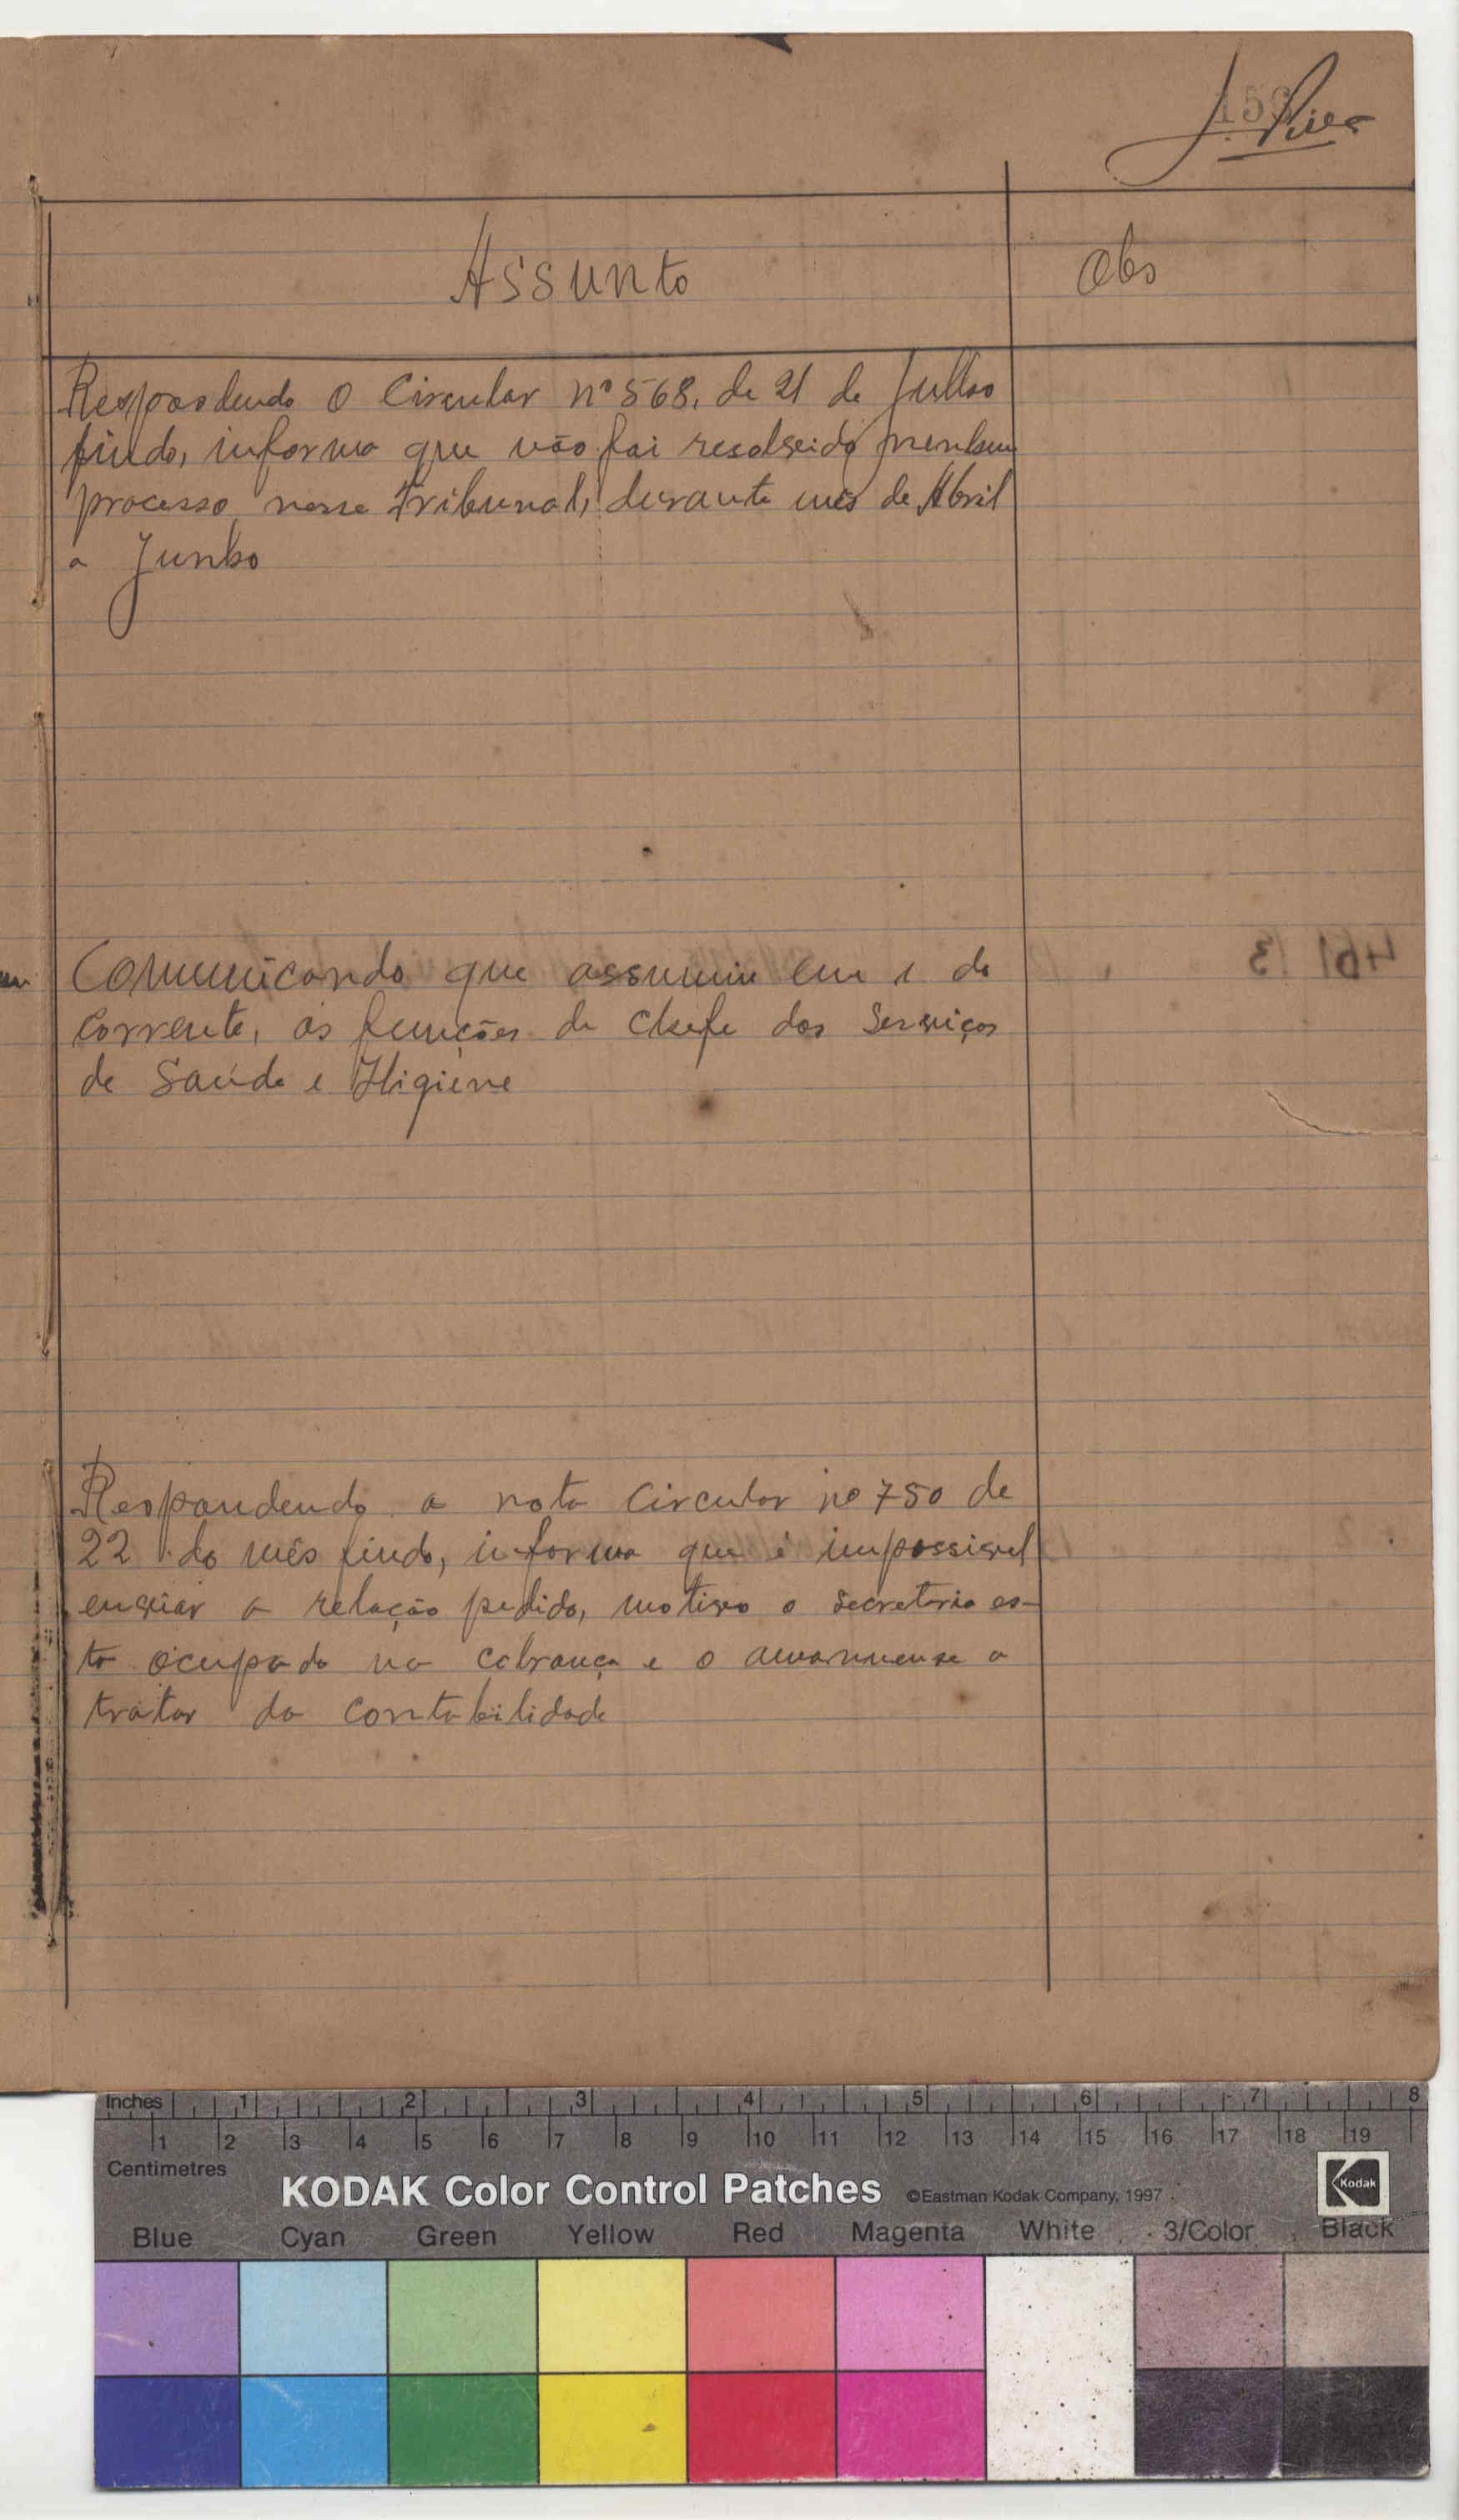 Assunto
Obs
Respondendo o Circular nº 568, de 21 de Julho
findo, informa que não foi resolvido nenhum
processo nesse Tribunal, durante mês de Abril
a Junho
Comunicando que assumiu em 1 do
corrente, as funções de chefe dos Serviços
de Saúde e Higiene
Respondendo a nota Circular nº 750 de
22 do mês findo, informa que é impossivel
enviar a relação pedido, motivo o secretario es-
ta ocupado na cobrança e o amanuense a
tratar da contabilidade
Inches 1 2 3 4 5 6 7 8
1 2 3 4 5 6 7 8 9 10 11 12 13 14 15 16 17 18 19
Centimetres
KODAK Color Control Patches ©Eastman Kodak Company, 1997 Kodak
Blue Cyan Green Yellow Red Magenta White 3/Color Black